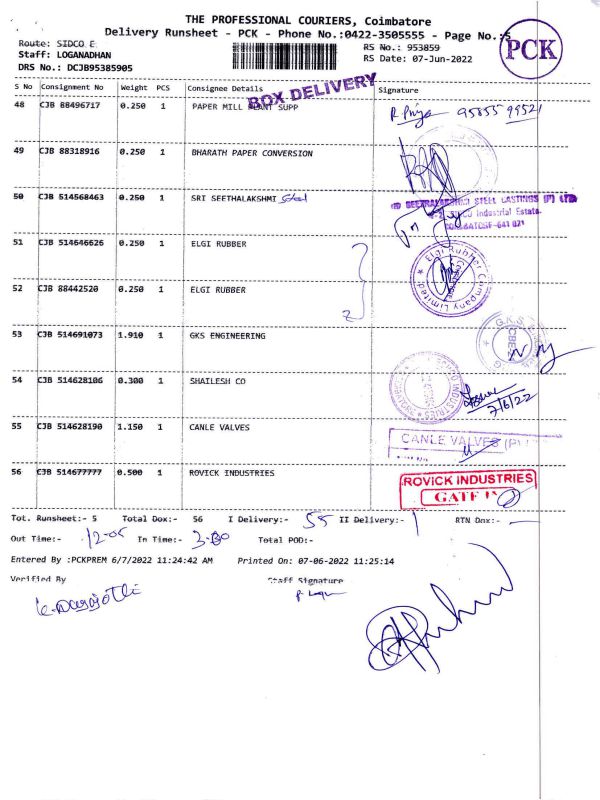 THE PROFESSIONAL COURIERS, Coimbatore
Delivery Runsheet - PCK - Phone No.:0422-3505555 - Page No.:5
PCK
Route: SIDCO E
Staff: LOGANADHAN
DRS No.: DCJB95385905
RS No.: 953859
RS Date: 07-Jun-2022
S No Consignment No Weight PCS Consignee Details Signature
BOX DELIVERY
48 CJB 88496717 0.250 1 PAPER MILL PLANT SUPP R Priya 95855 99521
49 CJB 88318916 0.250 1 BHARATH PAPER CONVERSION
50 CJB 514568463 0.250 1 SRI SEETHALAKSHMI Steel
SEETHALAKSHMI STEEL CASTINGS (P) LTD
SIDCO Industrial Estate
COIMBATORE-641 021
51 CJB 514646626 0.250 1 ELGI RUBBER
Elgi Rubber Company Limited
52 CJB 88442520 0.250 1 ELGI RUBBER
2
53 CJB 514691073 1.910 1 GKS ENGINEERING
G.K.S
54 CJB 514628106 0.300 1 SHAILESH CO
INDUSTRIES
7/6/22
55 CJB 514628190 1.150 1 CANLE VALVES
CANLE VALVES (P)
56 CJB 514677777 0.500 1 ROVICK INDUSTRIES
ROVICK INDUSTRIES
GATE IN
Tot. Runsheet:- 5 Total Dox:- 56 I Delivery:- 55 II Delivery:- 1 RTN Dox:- —
Out Time:- 12-05 In Time:- 3-30 Total POD:-
Entered By :PCKPREM 6/7/2022 11:24:42 AM Printed On: 07-06-2022 11:25:14
Verified By Staff Signature